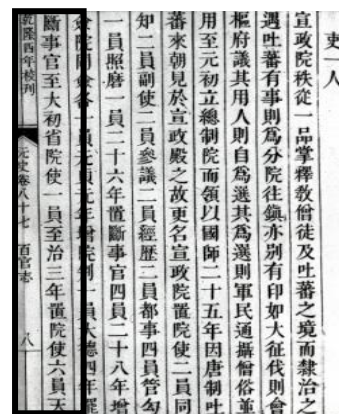 吏一人
宣政院秩從一品掌釋教僧徒及吐蕃之境而隸治之
遇吐蕃有事則爲分院往鎮亦別有印如大征伐則會
樞府議其用人則自爲選其爲選則軍民通攝僧俗並
用至元初立總制院而領以國師二十五年因唐制吐
蕃來朝見於宣政殿之故更名宣政院置院使二員同
知二員副使二員參議二員經歷二員都事四員管勾
一員照磨一員二十六年置斷事官四員二十八年增
僉院同僉各一員元貞元年增院判一員大德四年罷
斷事官至大初省院使一員至治三年置院使六員天
乾隆四年校刊 元史卷八十七 百官志 八